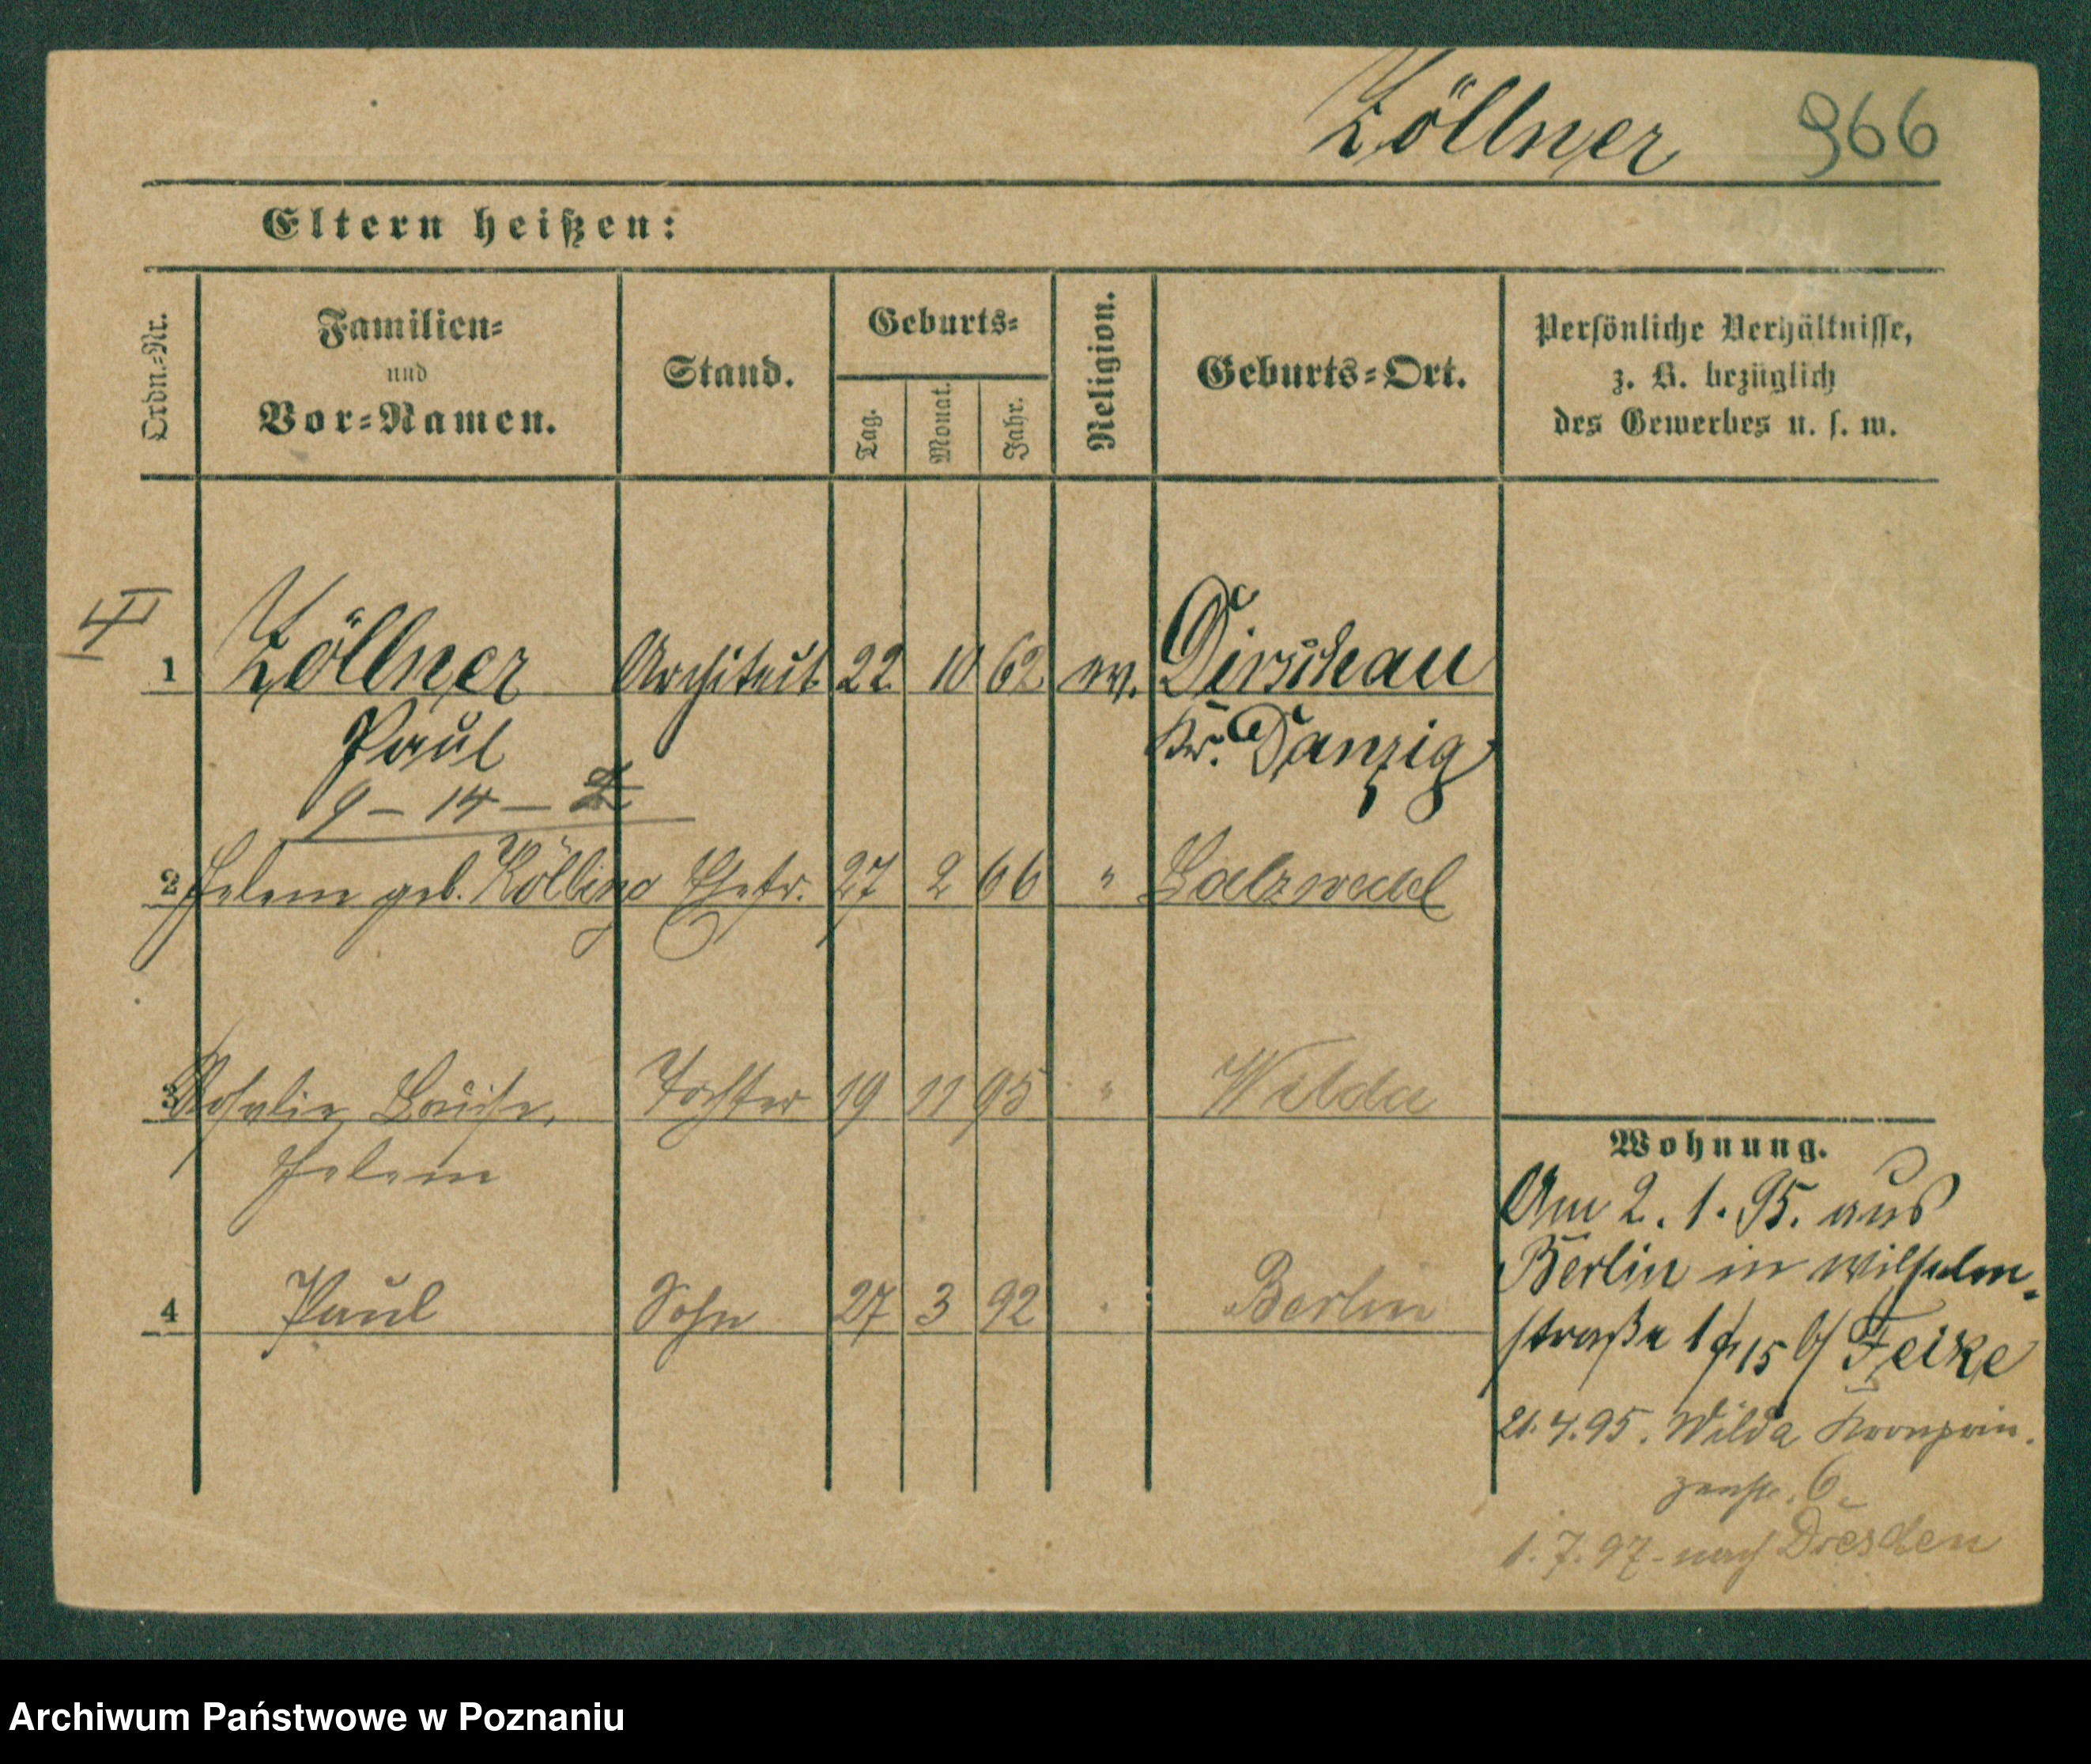 Zöllner 966
Eltern heißen:
Ordn.-Nr.
Familien-
und
Vor-Namen.
Stand.
Geburts-
Tag.
Monat.
Jahr.
Religion.
Geburts-Ort.
Persönliche Verhältnisse,
z. B. bezüglich
des Gewerbes u. s. w.
1 Zöllner Architekt 22 10 62 ev. Dirschau
Paul Kr. Danzig
9 – 14 –
2 Helene geb. Kölling Ehefr. 27 2 66 " Salzwedel
3 Rosalie Louise, Tochter 19 11 95 " Wilda
Helene
4 Paul Sohn 27 3 92 Berlin
Wohnung.
Am 2. 1. 95. aus
Berlin in Wilhelm-
straße 15 b/ Feike
21. 4. 95. Wilda Kronprin-
zenstr. 6.
1. 7. 97 - nach Dresden
Archiwum Państwowe w Poznaniu